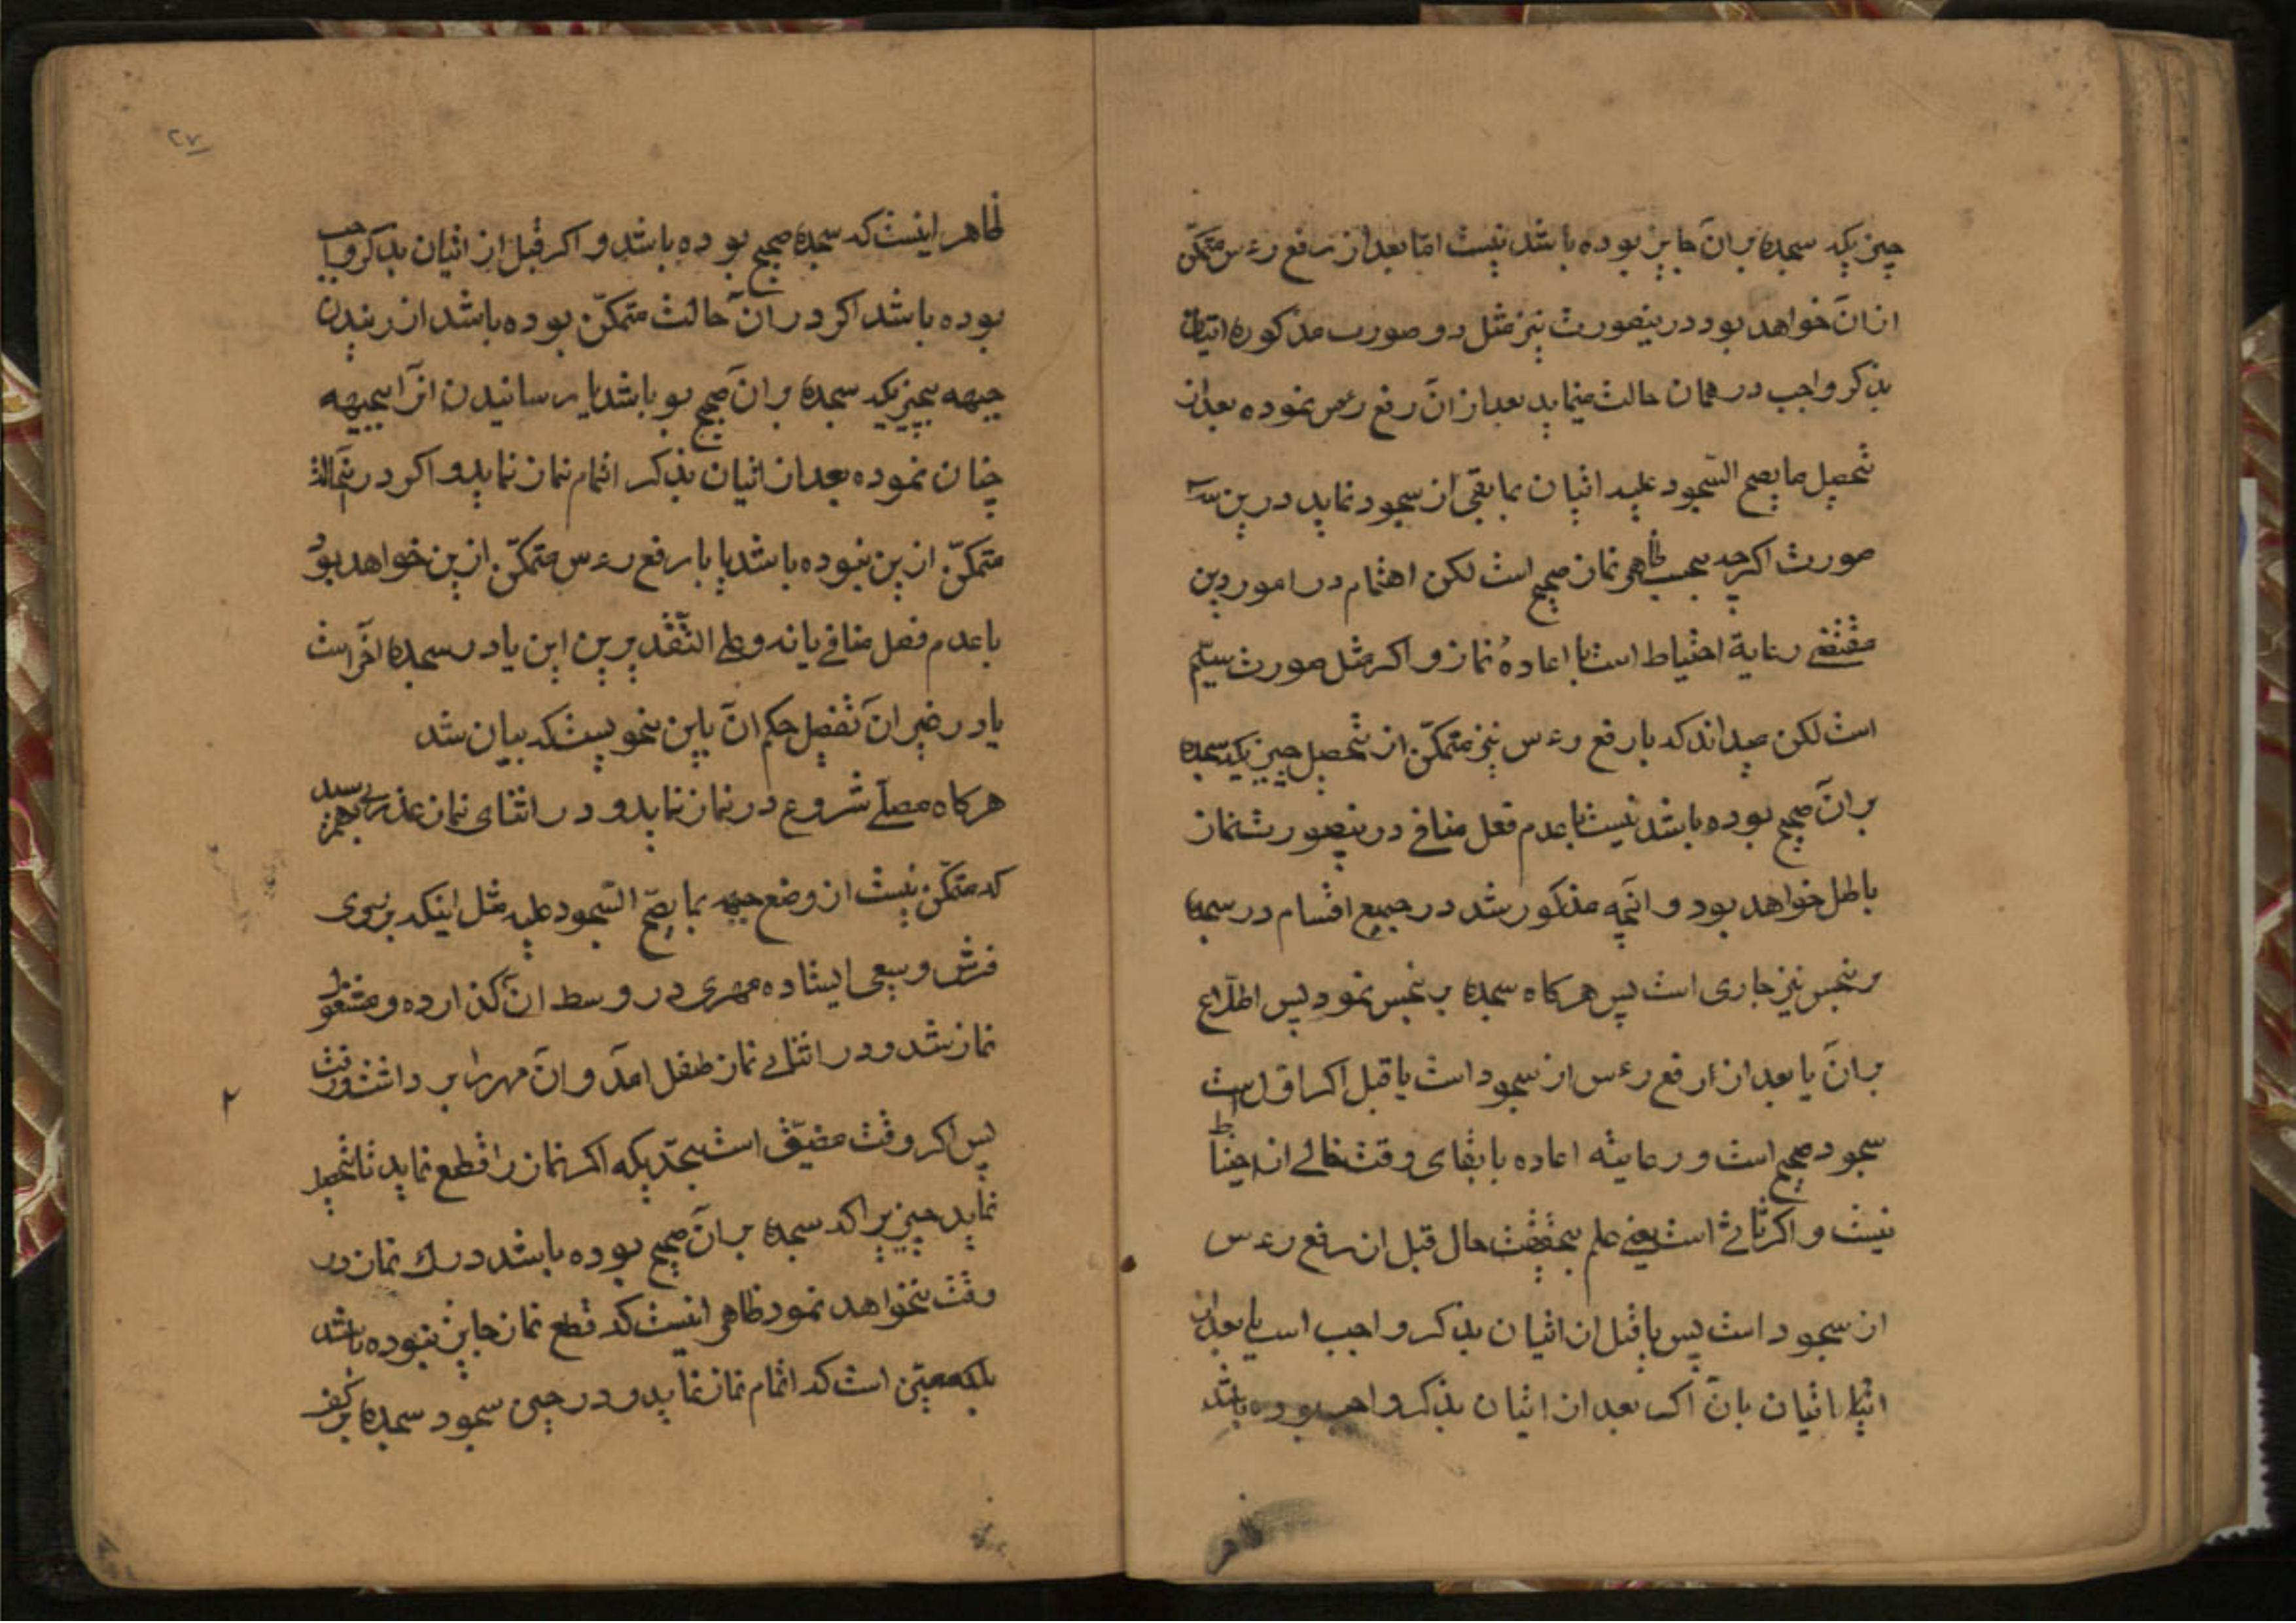 چیزیکه سجده بر آن جایز بوده باشد نیست امّا بعد از رفع رءس متمکّن
از آن خواهد بود درینصورت نیز مثل دو صورت مذکوره اتیان
بذکر واجب در همان حالت مینماید بعد از آن رفع رءس نموده بعد از
تحصیل ما یصح السّجود علیه اتیان بما بقی از سجود نماید درین سه
صورت اکرچه بحسب ظاهر نماز صحیح است لکن اهتمام در امور دین
مقتضی رعایة احتیاط است با اعادهٔ نماز و اکر مثل صورت سیّم
است لکن میداند که با رفع رءس نیز متمکّن از تحصیل چیزیکه سجده
بر آن صحیح بوده باشد نیست با عدم فعل منافی درینصورت نماز
باطل خواهد بود و آنچه مذکور شد در جمیع اقسام در سجده
بر نجس نیز جاری است پس هرکاه سجده بر نجس نمود پس اطلاع
بر آن یا بعد از رفع رءس از سجود است یا قبل اکر اوّل است
سجود صحیح است و رعایته اعاده با بقای وقت خالی از احتیاط
نیست و اکر ثانی است یعنی علم بحقیقت حال قبل از رفع رءس
از سجود است پس یا قبل از اتیان بذکر واجب است یا بعد از
اتیان بآن اکر بعد از اتیان بذکر واجب بوده باشد
ظاهر
۲۷
ظاهر اینست که سجده صحیح بوده باشد و اکر قبل از اتیان بذکر واجب
بوده باشد اکر در آن حالت متمکّن بوده باشد از رسیدن
جبهه بچیزیکه سجده بر آن صحیح بو باشد یا رسانیدن آنرا بجبهه
چنان نموده بعد از اتیان بذکر اتمام نماز نماید و اکر در آنحالت
متمکّن ازین نبوده باشد یا با رفع رءس متمکّن ازین خواهد بود
با عدم فعل منافی یا نه و علی التّقدیرین این یا در سجده آخر است
یا در غیر آن تفصیل حکم آن باین نحویست که بیان شد
هرکاه مصلّی شروع در نماز نماید و در اثنای نماز عذری بهم رسید
که متمکّن نیست از وضع جبهه بما یصحّ السّجود علیه مثل اینکه بر روی
فرش وسیعی ایستاده مهری در وسط آن کذارده و مشغول
نماز شد و در اثنای نماز طفل آمد و آن مهر را بر داشت و رفت
پس اکر وقت مضیّق است بحدّیکه اکر نماز را قطع نماید تا تحصیل
نماید چیزیرا که سجده بر آن صحیح بوده باشد درک نماز در
وقت نخواهد نمود ظاهر اینست که قطع نماز جایز نبوده باشد
بلکه معیّن است که اتمام نماز نماید و در حین سجود سجده بر کف